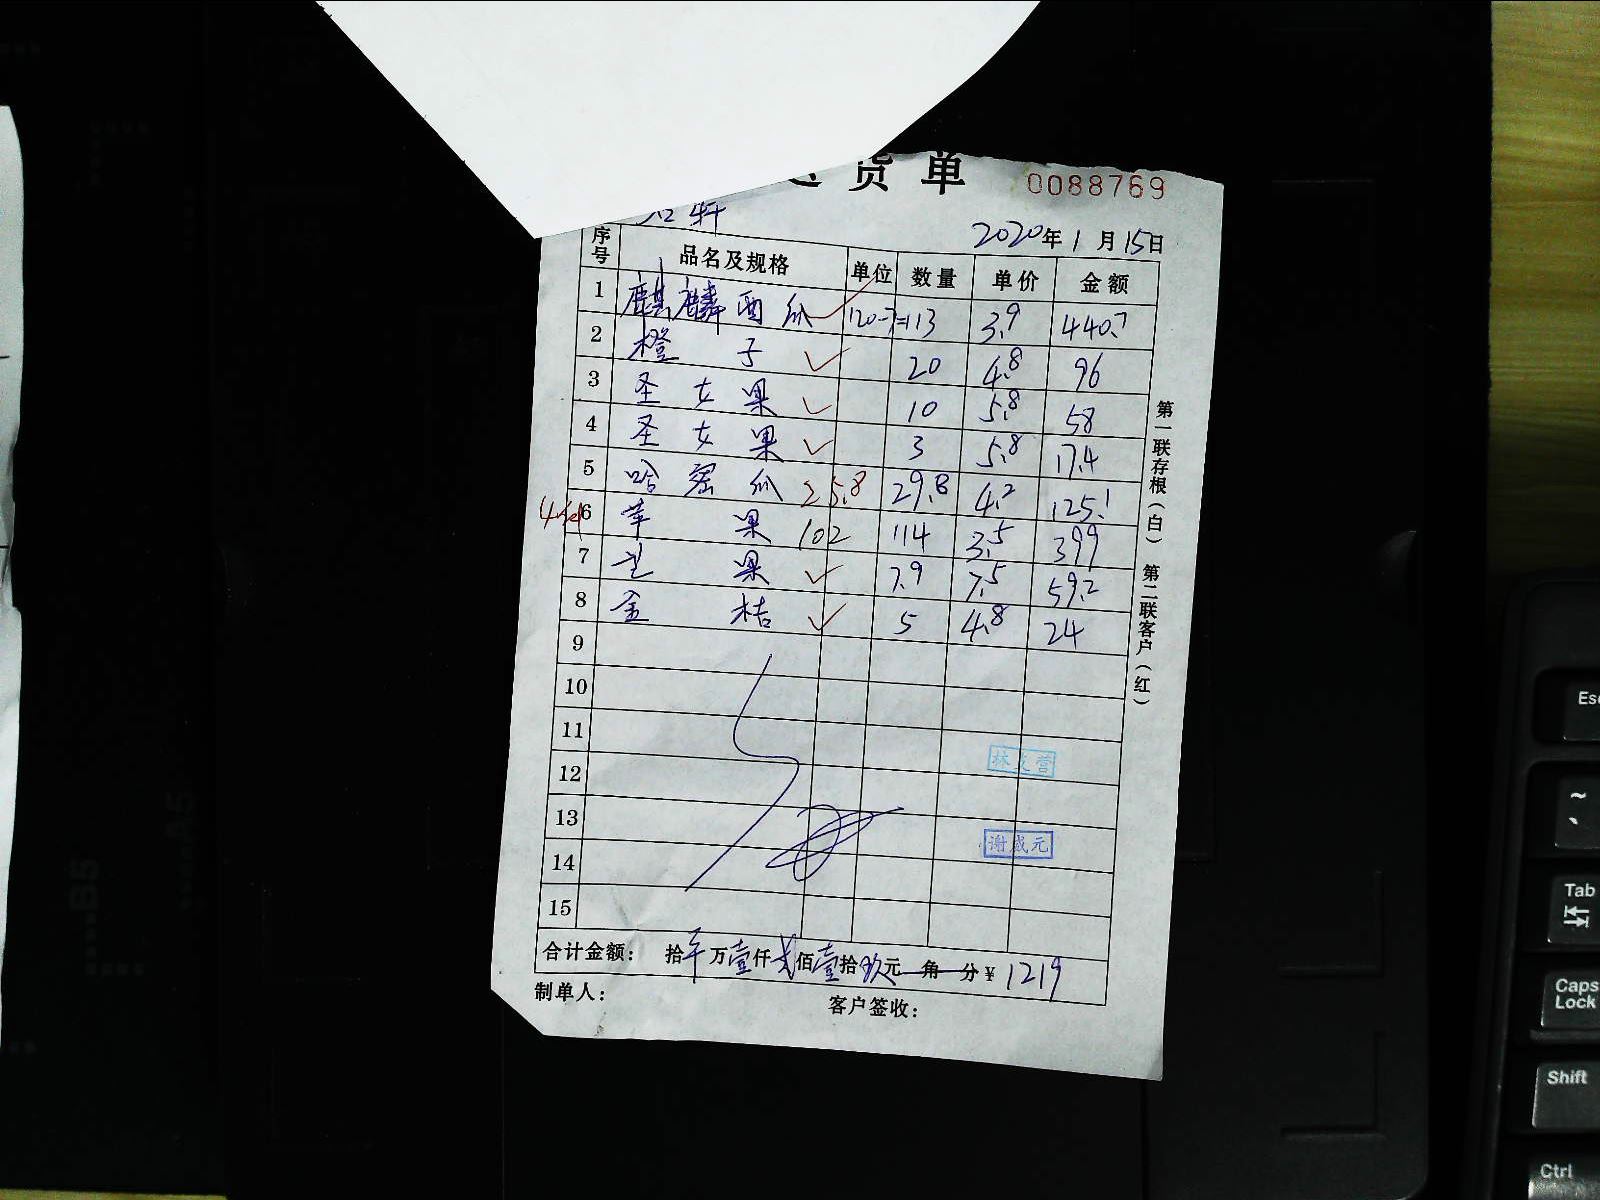 货单 0088769
轩
2020年1月15日
序号 品名及规格 单位 数量 单价 金额
1 麒麟西瓜 120-7=113 3.9 440.7
2 橙子 20 4.8 96
3 圣女果 10 5.8 58
4 圣女果 3 5.8 17.4
5 哈密瓜 25.8 29.8 4.2 125.1
6 苹果 102 114 3.5 399
7 果 7.9 7.5 59.2
8 金桔 5 4.8 24
9
10
11
12
13
14
15
林 营
谢咸元
合计金额: 拾 万壹仟贰佰壹拾玖元 角 分¥ 1219
制单人: 客户签收:
第一联存根(白) 第二联客户(红)
Esc
~
`
Tab
Caps Lock
Shift
Ctrl
B5
A5